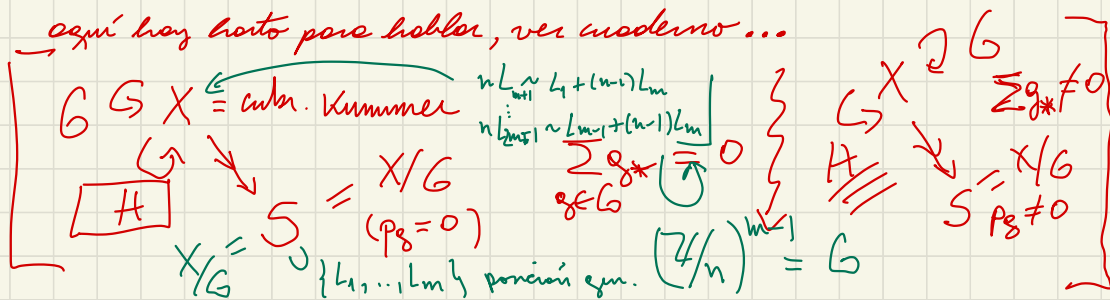 aquí hay harto para hablar, ver cuaderno...
G ↻ X = cubr. Kummer
nL_{m+1} ~ L_1 + (n-1)L_m
⋮
nL_{2m-1} ~ L_{m-1} + (n-1)L_m
H
S = X/G
(p_g = 0)
Σ_{g∈G} g_* = 0
X/G = S
{L_1, ..., L_m} posición gen. (ℤ/n)^{m-1} = G
X ↻ G
Σ g_* ≠ 0
H
S = X/G
p_g ≠ 0